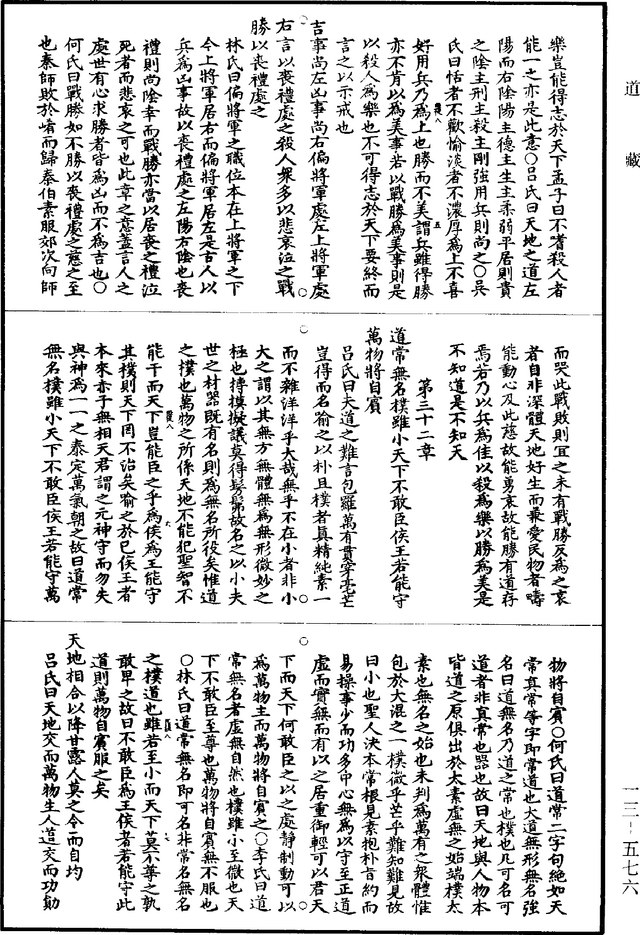 道藏
樂豈能得志於天下孟子曰不嗜殺人者
能一之亦是此意〇呂氏曰天地之道左
陽而右陰陽主德主生主柔弱平居則貴
之陰主刑主殺主剛強用兵則尚之〇吳
氏曰恬者不歡愉淡者不濃厚為上不喜
好用兵乃為上也勝而不美謂兵雖得勝
亦不肯以為美事若以戰勝為美事則是
以殺人為樂也不可得志於天下要終而
言之以示戒也
吉事尚左凶事尚右偏將軍處左上將軍處
右言以喪禮處之殺人衆多以悲哀泣之戰
勝以喪禮處之
林氏曰偏將軍之職位本在上將軍之下
今上將軍居右而偏將軍居左是古人以
兵為凶事故以喪禮處之左陽右陰也喪
禮則尚陰幸而戰勝亦當以居喪之禮泣
死者而悲哀之可也此章之意蓋言人之
處世有心求勝者皆為凶而不為吉也〇
何氏曰戰勝如不勝以喪禮處之慈之至
也秦師敗於崤而歸秦伯素服郊次向師
而哭此戰敗則宜之未有戰勝反為之哀
者自非深體天地好生而兼愛民物者疇
能動心及此慈故能勇哀故能勝有道存
焉若乃以兵為佳以殺為樂以勝為美是
不知道是不知天
第三十二章
道常無名樸雖小天下不敢臣侯王若能守
萬物將自賓
呂氏曰大道之難言包羅萬有貫穿毫芒
豈得而名喻之以朴且樸者真精純素一
而不雜洋洋乎大哉無乎不在小者非小
大之謂以其無方無體無為無形微妙之
極也摶摸擬議莫得髣髴故名之以小夫
世之材器既有名則為無名所役矣惟道
之樸也萬物之所係天地不能犯聖智不
能干而天下豈能臣之乎為侯為王能守
其樸則天下罔不治矣喻之於已侯王者
本來赤子無相天君謂之元神守而勿失
與神為一一之泰定萬氣朝之故曰道常
無名樸雖小天下不敢臣侯王若能守萬
物將自賓〇何氏曰道常二字句絶如天
常真常等字即常道也大道無形無名強
名曰道無名乃道之常也樸也凡可名可
道者非真常也器也故曰天地與人物本
皆道之原俱出於太素虛無之始端樸太
素也無名之始也未判為萬有之衆體惟
包於大混之一樸微乎芒乎難知難見故
曰小也聖人決本常根見素抱朴言約而
易操事少而功多中心無為以守至正道
虛而實無而有以之居重御輕可以君天
下而天下何敢臣之以之處静制動可以
為萬物主而萬物將自賓之〇李氏曰道
常無名者虛無自然也樸雖小至微也天
下不敢臣至尊也萬物將自賓無不服也
〇林氏曰道常無名即可名非常名無名
之樸道也雖若至小而天下莫不尊之孰
敢卑之故曰不敢臣為王侯者若能守此
道則萬物自賓服之矣
天地相合以降甘露人莫之令而自均
呂氏曰天地交而萬物生人道交而功勛
一三－五七六